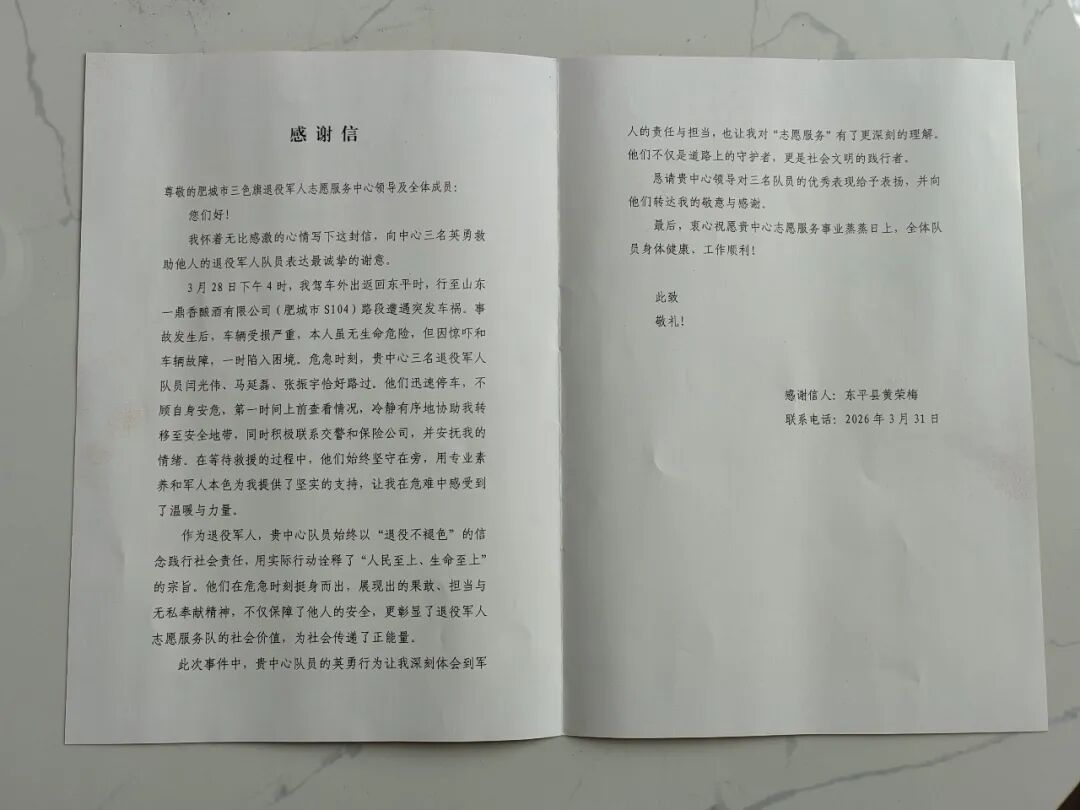 感谢信
尊敬的肥城市三色旗退役军人志愿服务中心领导及全体成员：
您们好！
我怀着无比感激的心情写下这封信，向中心三名英勇救
助他人的退役军人队员表达最诚挚的谢意。
3月28日下午4时，我驾车外出返回东平时，行至山东
一鼎香酿酒有限公司（肥城市S104）路段遭遇突发车祸。事
故发生后，车辆受损严重，本人虽无生命危险，但因惊吓和
车辆故障，一时陷入困境。危急时刻，贵中心三名退役军人
队员闫光伟、马延磊、张振宇恰好路过。他们迅速停车，不
顾自身安危，第一时间上前查看情况，冷静有序地协助我转
移至安全地带，同时积极联系交警和保险公司，并安抚我的
情绪。在等待救援的过程中，他们始终坚守在旁，用专业素
养和军人本色为我提供了坚实的支持，让我在危难中感受到
了温暖与力量。
作为退役军人，贵中心队员始终以“退役不褪色”的信
念践行社会责任，用实际行动诠释了“人民至上、生命至上”
的宗旨。他们在危急时刻挺身而出，展现出的果敢、担当与
无私奉献精神，不仅保障了他人的安全，更彰显了退役军人
志愿服务队的社会价值，为社会传递了正能量。
此次事件中，贵中心队员的英勇行为让我深刻体会到军
人的责任与担当，也让我对“志愿服务”有了更深刻的理解。
他们不仅是道路上的守护者，更是社会文明的践行者。
恳请贵中心领导对三名队员的优秀表现给予表扬，并向
他们转达我的敬意与感谢。
最后，衷心祝愿贵中心志愿服务事业蒸蒸日上，全体队
员身体健康、工作顺利！
此致
敬礼！
感谢信人：东平县黄荣梅
联系电话：2026年3月31日